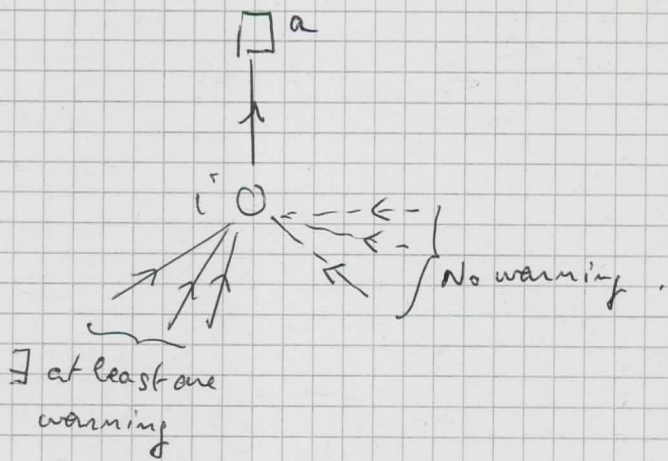 a
i
No warning.
∃ at least one
warning